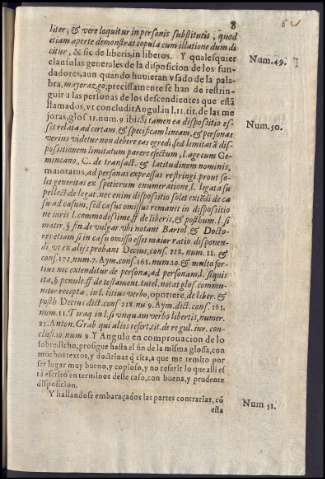 8
liter, & vere loquitur in personis substitutis, quod
etiam aperte demonstrat sequela cum illatione dum di
citur, & sic de liberis, in liberos. Y qualesquier
clausulas generales de la disposicion de los fun-
dadores, aun quando huvieran vsado de la pala-
bra, mayorazgo, precissamente se han de restrin-
guir a las personas de los descendientes que està
llamados, vt concludit Angulo in l. 11. tit. de las me
joras, glos. 11. num. 9 ibi: Si tamen ea dispositio es-
set relata ad certam, & specificam lineam, & personas
verius videtur non debere eas egredi, sed limitatā dis-
positionem limitatum parere effectum, l. agerum Ge-
miniano, C. de transact. & latitudinem nominis,
maioratus, ad personas expressas restringi prout so-
let generalitas ex specierum enumeratione, l. legata su
pellectile de leg. in hoc enim dispositio solet extēdi de ca
su ad casum, sed casus omissus remanet in dispositio
ne iuris l. commodissime ff. de liberis, & posthum. l. si
mater, § fin de vulgar. vbi notant Bartol & Docto-
res etiam si in casu omisso esset maior ratio disponen-
di, vt ex alijs probant Decius, cons. num. 11. &
cons. 172. num. 7. Aym. cons. 161. num. 20. & multo for-
tius nec extenditur de persona, ad personam l. si quis
ita, § penult. ff de testament. tutel. notat glos. commu-
niter recepta, in l. liberorum verbo, oportere, de liber. &
posth Decius dict. cons. nu. 9. Aym. dict. cons. 161.
num. 11. Tiraq in l. si vnquam verbo libertis, numer.
Anton. Grab qui alios refert, tit. de regul. iur. con-
clus. 10 num 2 Y Angulo en comprouacion de lo
sobredicho, prosigue hasta el fin de la misma glossa, con
muchos textos, y doctrinas q̄ cita, a que me remito por
ser lugar muy bueno, y copioso, y no referir lo que alli es
tà escrito en terminos deste caso, con buena, y prudente
disposicion.
Y hallandose embaraçados las partes contrarias, cō
esta
Num. 49.
Num. 50.
Num 51.